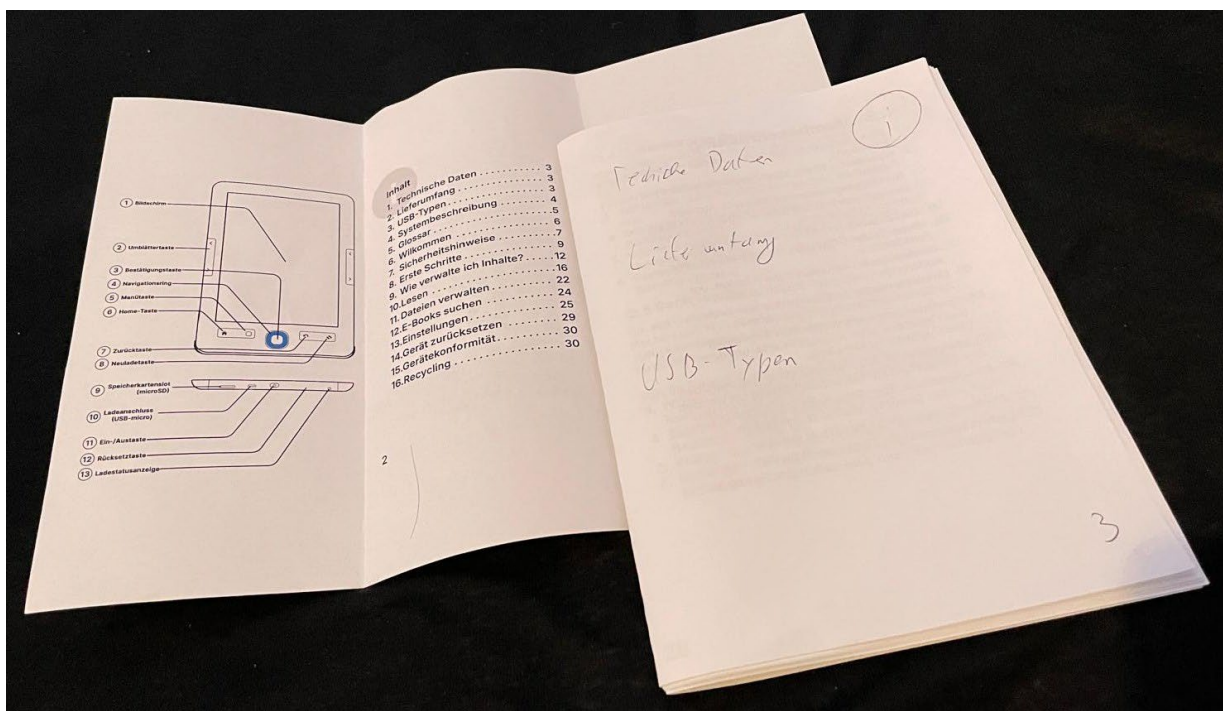 1 Bildschirm
2 Umblättertaste
3 Bestätigungstaste
4 Navigationsring
5 Menütaste
6 Home-Taste
7 Zurücktaste
8 Neuladetaste
9 Speicherkartenslot
(microSD)
10 Ladeanschluss
(USB-micro)
11 Ein-/Austaste
12 Rücksetztaste
13 Ladestatusanzeige
Inhalt
1. Technische Daten . . . . . . . . . . 3
2. Lieferumfang . . . . . . . . . . . . . 3
3. USB-Typen. . . . . . . . . . . . . . . 3
4. Systembeschreibung . . . . . . . 4
5. Glossar. . . . . . . . . . . . . . . . . .5
6. Wilkommen . . . . . . . . . . . . . . 6
7. Sicherheitshinweise . . . . . . . .7
8. Erste Schritte . . . . . . . . . . . . . 9
9. Wie verwalte ich Inhalte? . . . . .12
10.Lesen . . . . . . . . . . . . . . . . . .16
11.Dateien verwalten . . . . . . . . . 22
12.E-Books suchen . . . . . . . . . . 24
13.Einstellungen. . . . . . . . . . . . . 25
14.Gerät zurücksetzen . . . . . . . . 29
15.Gerätekonformität. . . . . . . . . . 30
16.Recycling . . . . . . . . . . . . . . . 30
2
i
Daten
USB-Typen
3